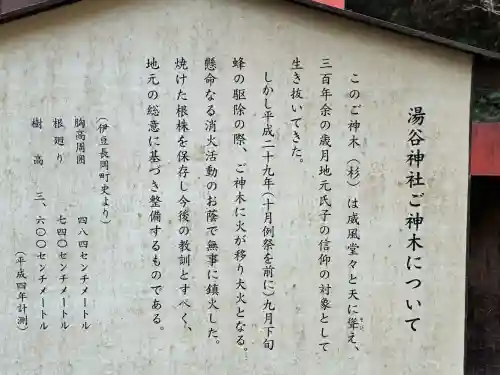 湯谷神社ご神木について
このご神木(杉)は威風堂々と天に聳え、
三百年余の歳月地元氏子の信仰の対象として
生き抜いてきた。
しかし平成二十九年(十月例祭を前に)九月下旬
蜂の駆除の際、ご神木に火が移り大火となる。
懸命なる消火活動のお蔭で無事に鎮火した。
焼けた根株を保存し今後の教訓とすべく、
地元の総意に基づき整備するものである。
(伊豆長岡町史より)
胸高周囲 四八四センチメートル
根廻り 七四〇センチメートル
樹高 三、六〇〇センチメートル
(平成四年計測)